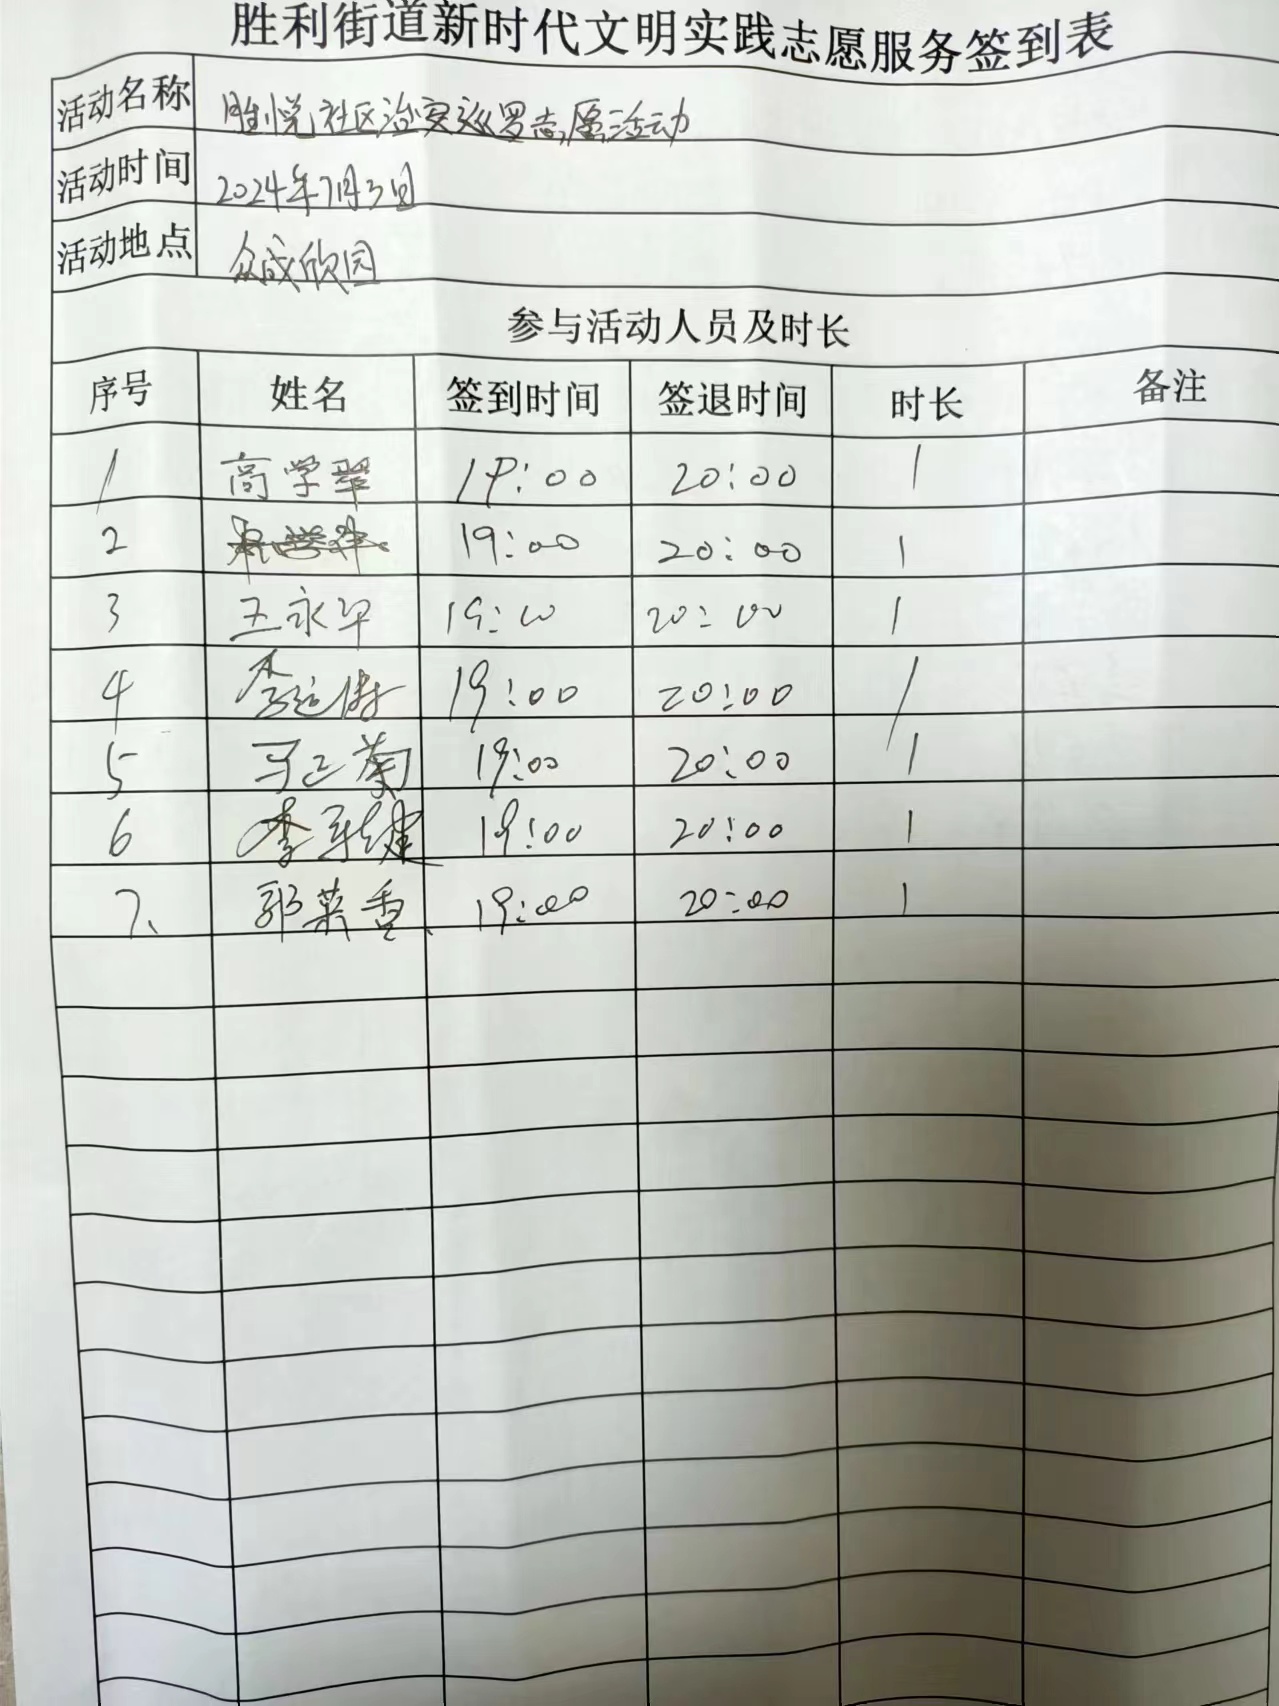 胜利街道新时代文明实践志愿服务签到表
活动名称 胜悦社区治安巡罗志愿活动
活动时间 2024年7月3日
活动地点 众成欣园
参与活动人员及时长
序号 姓名 签到时间 签退时间 时长 备注
1 高学翠 19:00 20:00 1
2 19:00 20:00 1
3 王永华 19:00 20:00 1
4 李 19:00 20:00 1
5 马正菊 19:00 20:00 1
6 李 健 19:00 20:00 1
7、 郭英香 19:00 20:00 1